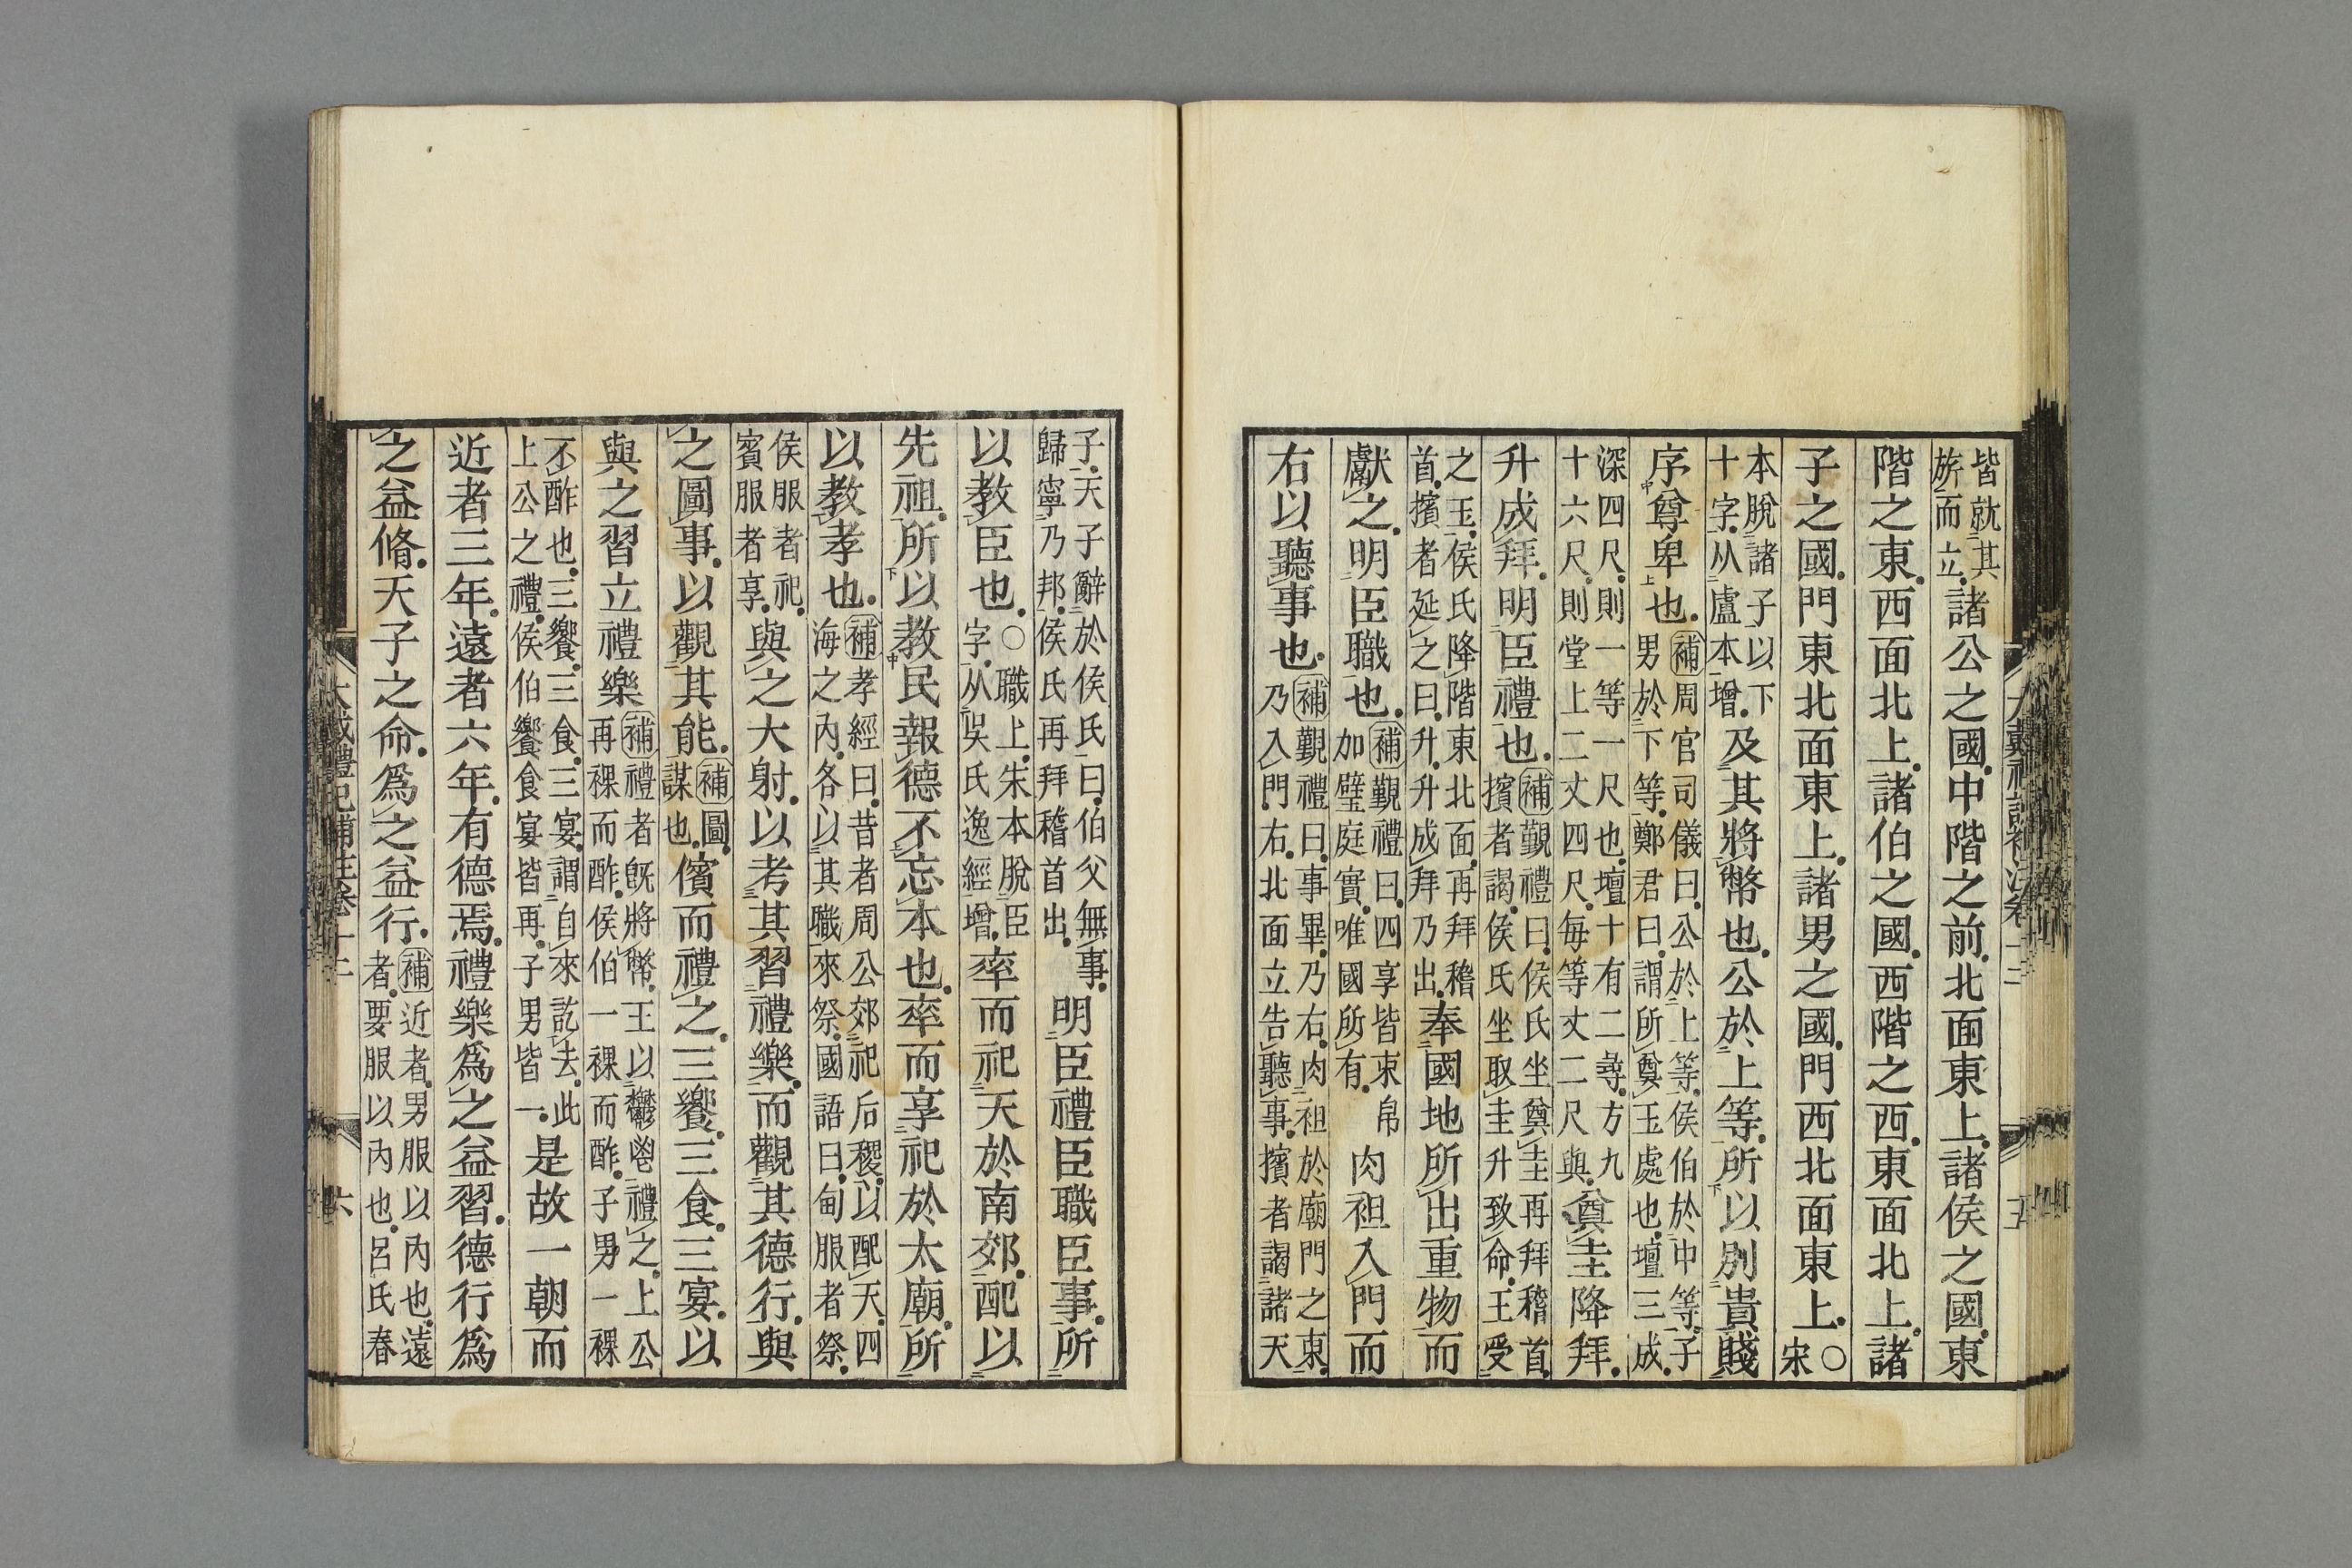 皆就其
旂而立諸公之國中階之前北面東上諸侯之國東
階之東西面北上諸伯之國西階之西東面北上諸
子之國門東北面東上諸男之國門西北面東上○宋
本脫諸子以下
十字从盧本增及其將幣也公於上等所以別貴賤
序尊卑也補周官司儀曰公於上等侯伯於中等子
男於下等鄭君曰謂所奠玉處也壇三成
深四尺則一等一尺也壇十有二尋方九
十六尺則堂上二丈四尺每等丈二尺與奠圭降拜
升成拜明臣禮也補覲禮曰侯氏坐奠圭再拜稽首
擯者謁侯氏坐取圭升致命王受
之玉侯氏降階東北面再拜稽
首擯者延之曰升升成拜乃出奉國地所出重物而
獻之明臣職也補覲禮曰四享皆束帛
加璧庭實唯國所有肉袒入門而
右以聽事也補覲禮曰事畢乃右肉袒於廟門之東
乃入門右北面立告聽事擯者謁諸天
大戴禮記補注卷十二
五
子天子辭於侯氏曰伯父無事
歸寧乃邦侯氏再拜稽首出明臣禮臣職臣事所
以教臣也○職上朱本脫臣
字从吳氏逸經增率而祀天於南郊配以
先祖所以教民報德不忘本也率而享祀於太廟所
以教孝也補孝經曰昔者周公郊祀后稷以配天四
海之內各以其職來祭國語曰甸服者祭
侯服者祀
賓服者享與之大射以考其習禮樂而觀其德行與
之圖事以觀其能補圖
謀也儐而禮之三饗三食三宴以
與之習立禮樂補禮者旣將幣王以鬱鬯禮之上公
再祼而酢侯伯一祼而酢子男一祼
不酢也三饗三食三宴謂自來訖去此
上公之禮侯伯饗食宴皆再子男皆一是故一朝而
近者三年遠者六年有德焉禮樂爲之益習德行爲
之益脩天子之命爲之益行補近者男服以內也遠
者要服以內也呂氏春
大戴禮記補注卷十二
六